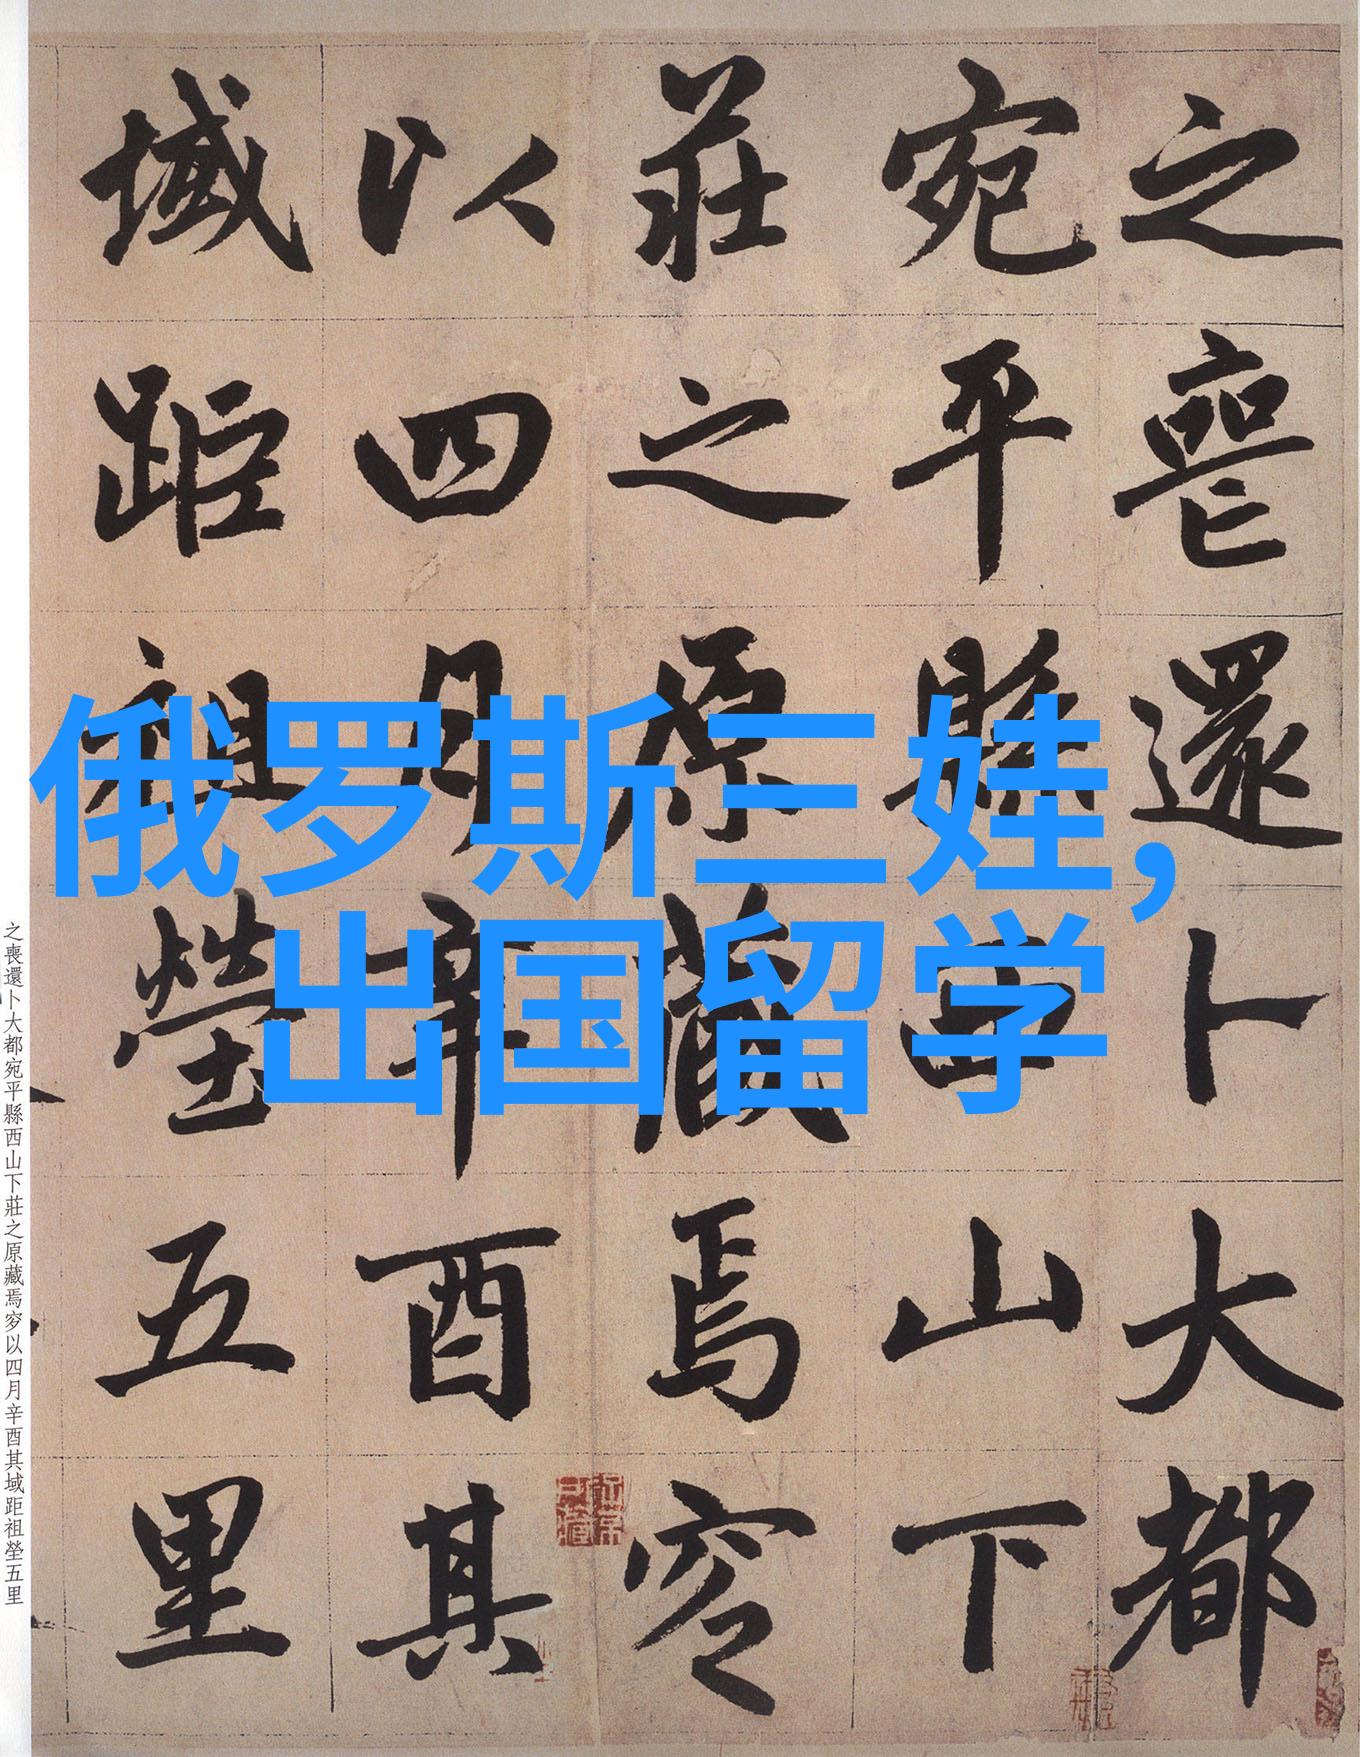 之喪還卜大都
宛平縣西山下
莊之原藏焉穸
以四月辛酉其
域距祖塋五里
俄罗斯三娃,
出国留学
之喪還卜大都宛平縣西山下莊之原藏焉穸以四月辛酉其域距祖塋五里